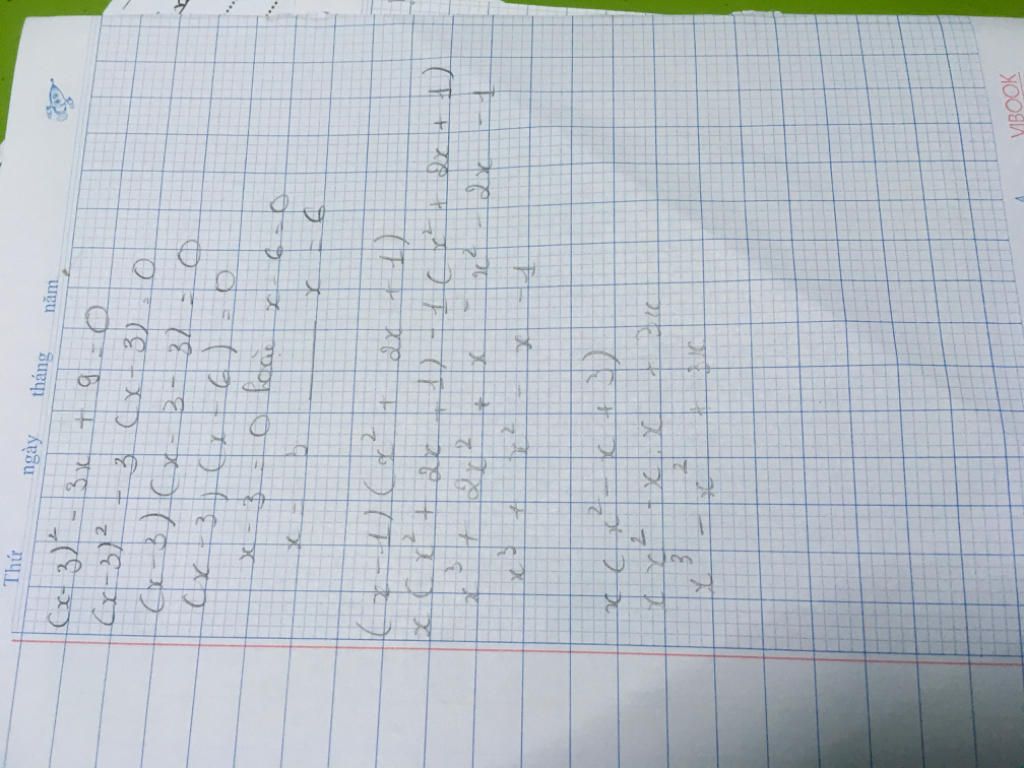 Thứ ngày tháng năm
(x-3)² - 3x + 9 = 0
(x-3)² - 3 (x-3) = 0
(x-3) (x-3-3) = 0
(x-3) (x-6) = 0
x-3 = 0 hoặc x-6=0
x = 3 x = 6
(x-1) (x² + 2x + 1)
x (x² + 2x + 1) - 1 (x² + 2x + 1)
x³ + 2x² + x - x² - 2x - 1
x³ + x² - x - 1
x (x² - x + 3)
x x² - x.x + 3x
x³ - x² + 3x
VIBOOK